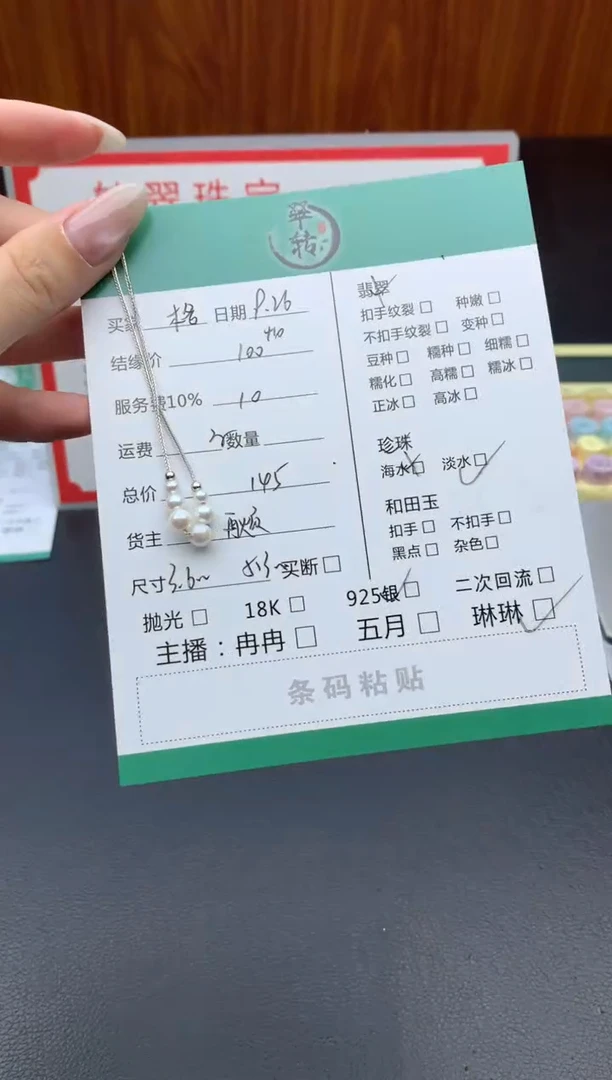 翠珠宝
翠转
买家 格 日期 9.26
结缘价 100 +40
服务费10% 10
运费 数量
总价 145
货主
尺寸 买断☐
翡翠
扣手纹裂☐ 种嫩☐
不扣手纹裂☐ 变种☐
豆种☐ 糯种☐ 细糯☐
糯化☐ 高糯☐ 糯冰☐
正冰☐ 高冰☐
珍珠
海水☐ 淡水☐
和田玉
扣手☐ 不扣手☐
黑点☐ 杂色☐
抛光☐ 18K☐ 925银☐ 二次回流☐
主播：冉冉☐ 五月☐ 琳琳☐
条码粘贴